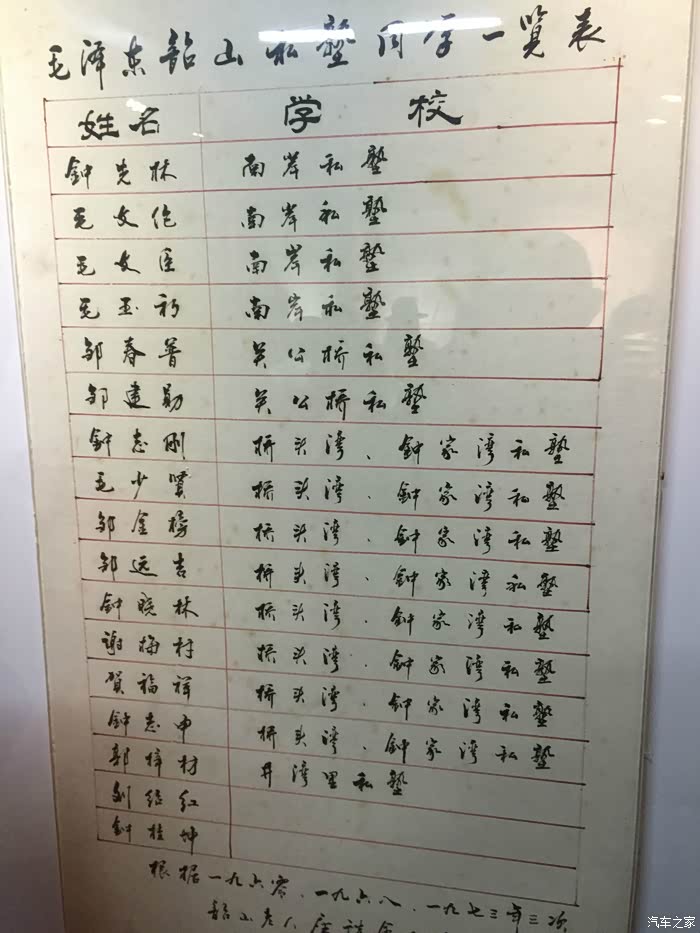 毛泽东韶山私塾同学一览表
姓名 学校
钟先林 南岸私塾
毛文伦 南岸私塾
毛文臣 南岸私塾
毛玉衫 南岸私塾
邹春普 关公桥私塾
邹建勋 关公桥私塾
钟志刚 桥头湾、钟家湾私塾
毛少贤 桥头湾、钟家湾私塾
邹金榜 桥头湾、钟家湾私塾
邹远吉 桥头湾、钟家湾私塾
钟晓林 桥头湾、钟家湾私塾
谢梅村 桥头湾、钟家湾私塾
贺福祥 桥头湾、钟家湾私塾
钟志申 桥头湾、钟家湾私塾
郭梓材 井湾里私塾
刘绍红
钟桂坤
根据一九六零、一九六八、一九七三年三次
韶山老人座谈会
汽车之家